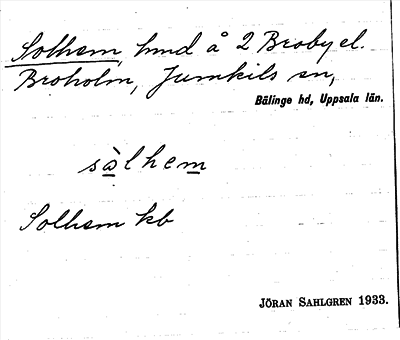 Solhem, hmd å 2 Broby el.
Broholm, Jumkils sn,
Bälinge hd, Uppsala län.
sòlhem
Solhem kb
JÖRAN SAHLGREN 1933.